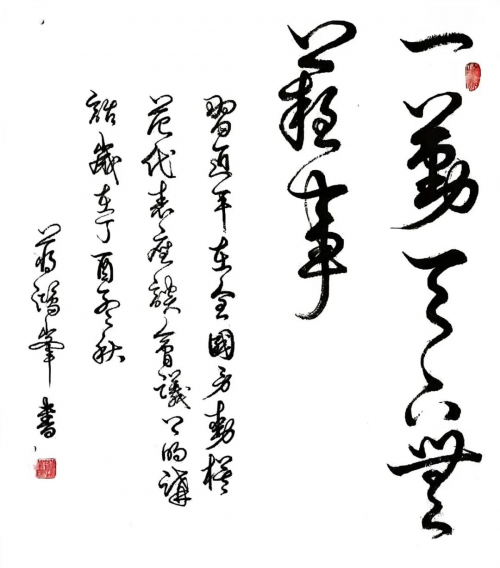 一勤天下無
難事
習近平在全國勞動模
范代表座談會議上的講
話歲在丁酉孟秋
蔣鴻峯書